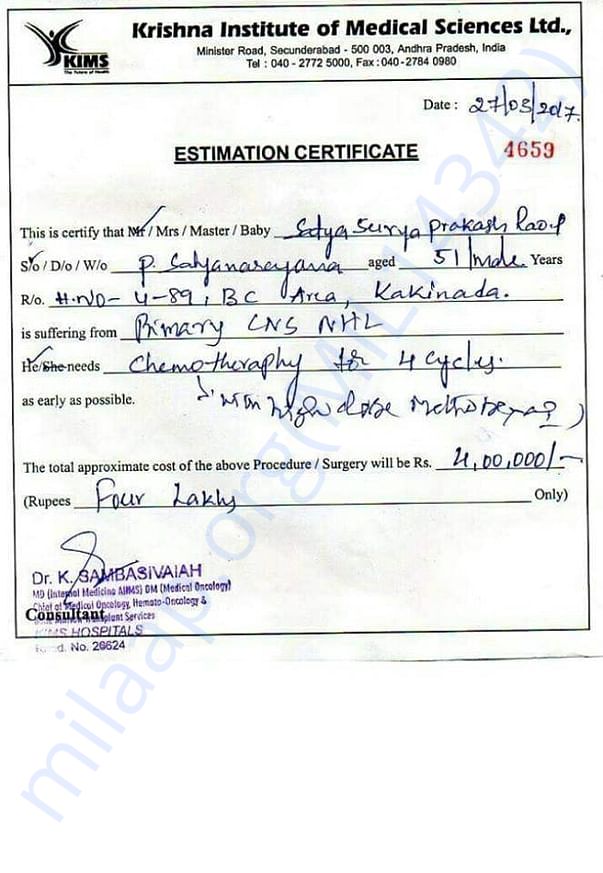 KIMS
The Future of Health
Krishna Institute of Medical Sciences Ltd.,
Minister Road, Secunderabad - 500 003, Andhra Pradesh, India
Tel : 040 - 2772 5000, Fax : 040-2784 0980
Date : 27/03/2017.
ESTIMATION CERTIFICATE 4659
This is certify that Mr / Mrs / Master / Baby Satya Surya Prakash Rao.P
S/o / D/o / W/o P. Satyanarayana aged 51/Male Years
R/o. H.NO- 4-89, BC Area, Kakinada.
is suffering from Primary CNS NHL
He/She needs Chemotheraphy for 4 cycles.
as early as possible. high dose
The total approximate cost of the above Procedure / Surgery will be Rs. 4,00,000/-
(Rupees Four Lakhs Only)
Dr. K. SAMBASIVAIAH
MD (Internal Medicine AIIMS) DM (Medical Oncology)
Chief of Medical Oncology, Hemato-Oncology &
Consultant Transplant Services
KIMS HOSPITALS
No. 26624
milaap.org(MILI14342)